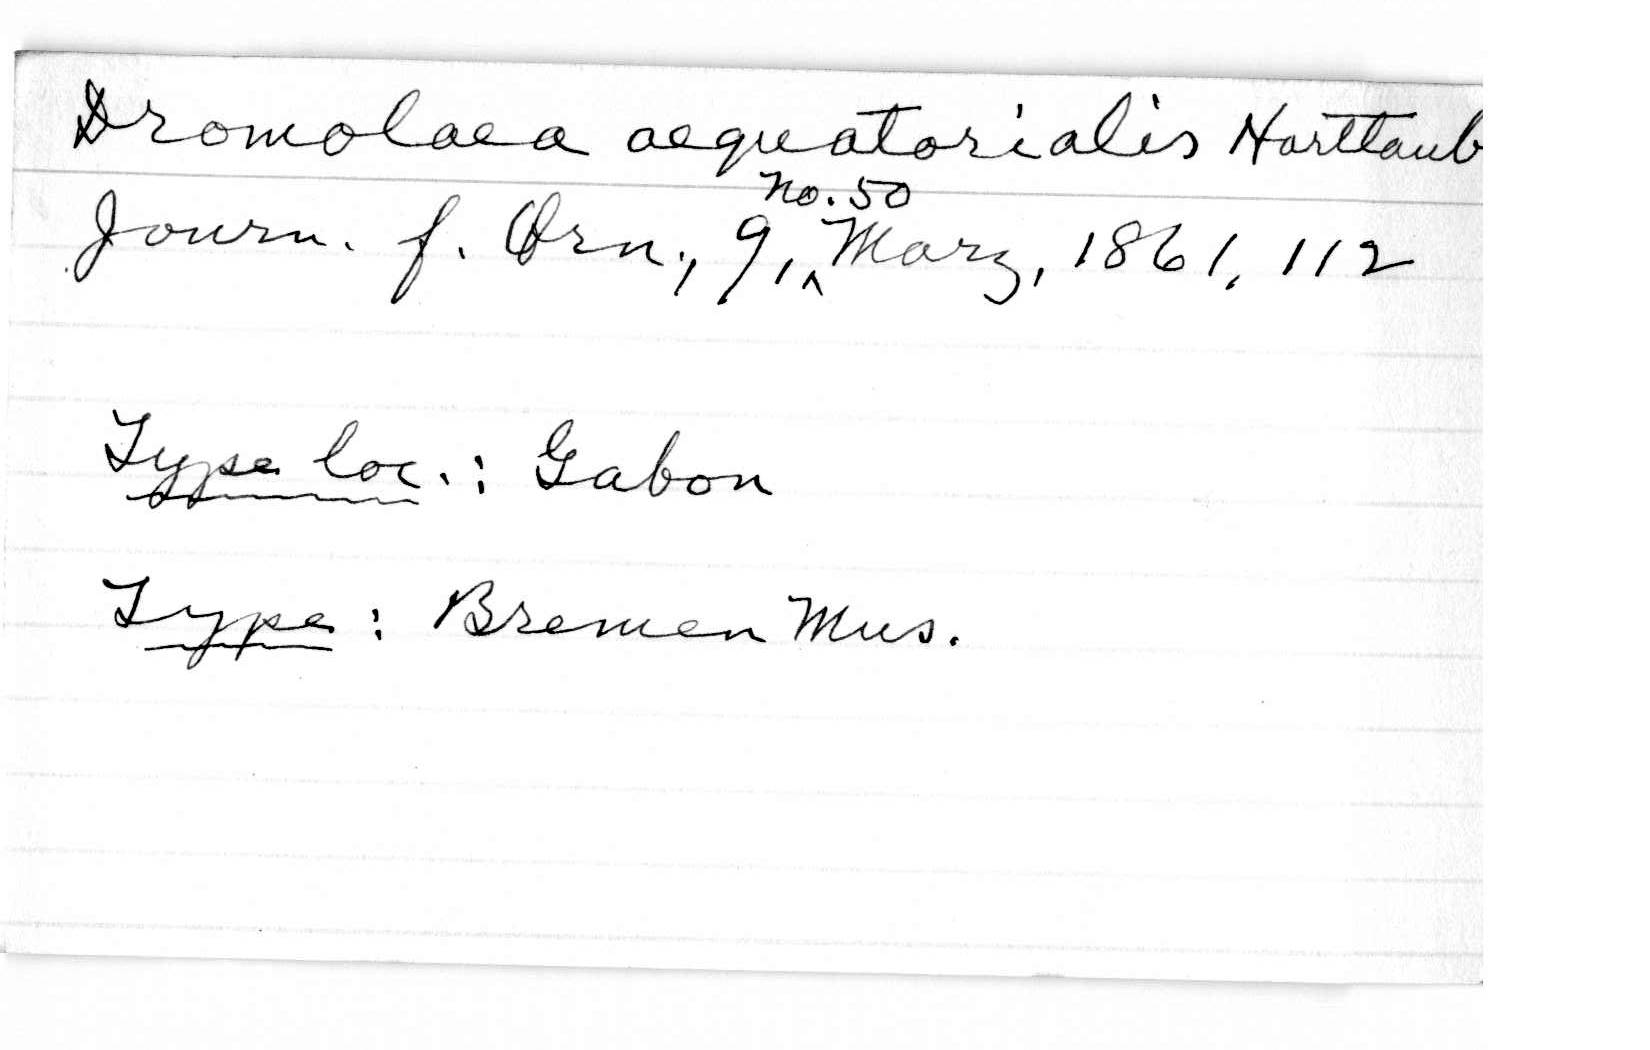 Dromolaea aequatorialis Harttaub
Journ. f. Orn., 9, no. 50 Marz, 1861, 112
Type loc.: Gabon
Type: Bremen Mus.